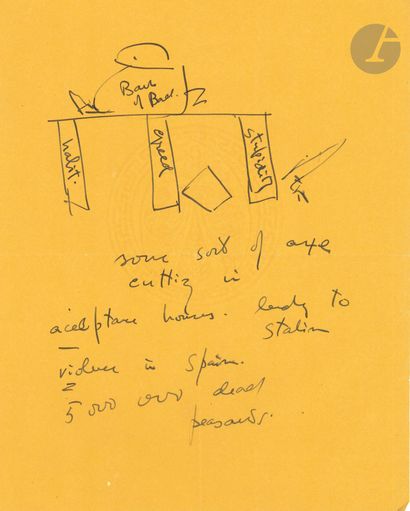 Bank
of
habit.
greed
stupidity
some sort of axe
cutting in
acceptance houses. leads to
Stalin
violence in Spain.
2
5 000 000 dead
peasants.